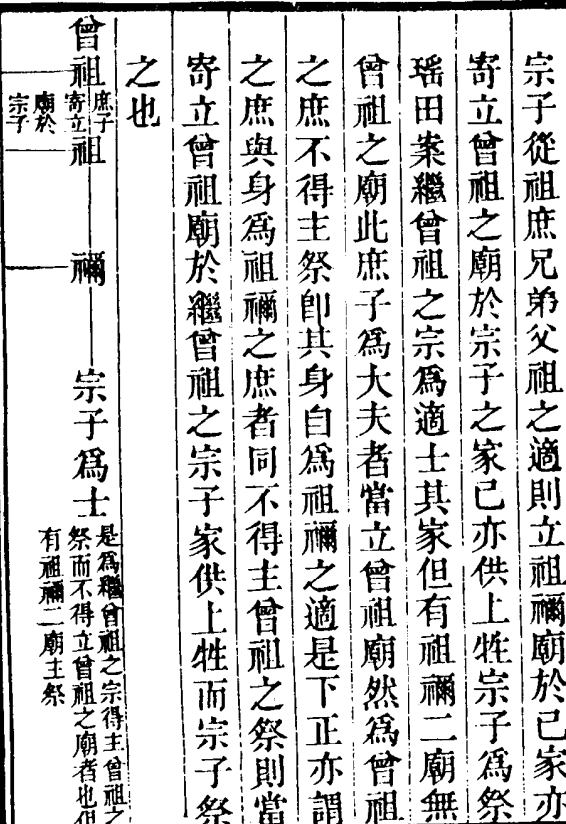 宗子從祖庶兄弟父祖之適則立祖禰廟於己家亦
寄立曾祖之廟於宗子之家己亦供上牲宗子爲祭
瑤田案繼曾祖之宗爲適士其家但有祖禰二廟無
曾祖之廟此庶子爲大夫者當立曾祖廟然爲曾祖
之庶不得主祭卽其身自爲祖禰之適是下正亦謂
之庶與身爲祖禰之庶者同不得主曾祖之祭則當
寄立曾祖廟於繼曾祖之宗子家供上牲而宗子祭
之也
曾祖
庶子
寄立
廟於
宗子
祖
禰
宗子爲士
是爲繼曾祖之宗得主曾祖之
祭而不得立曾祖之廟者也但
有祖禰二廟主祭